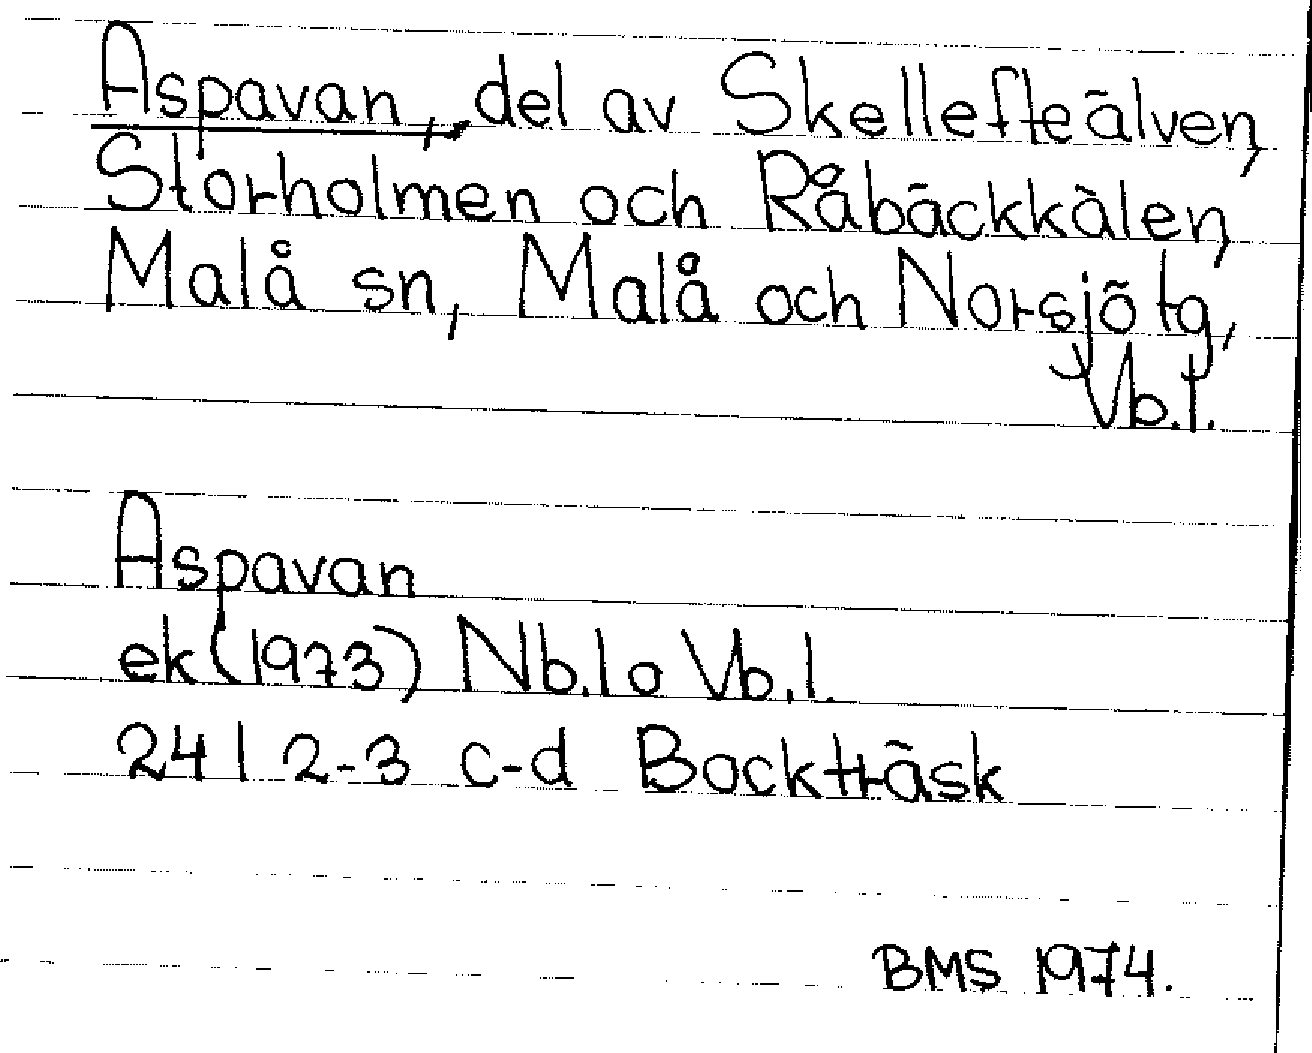 Aspavan, del av Skellefteälven,
Storholmen och Råbäckkälen,
Malå sn, Malå och Norsjö tg,
Vb.l.
Aspavan
ek (1973) Nb.l o Vb.l.
24 I 2-3 c-d Bockträsk
BMS 1974.